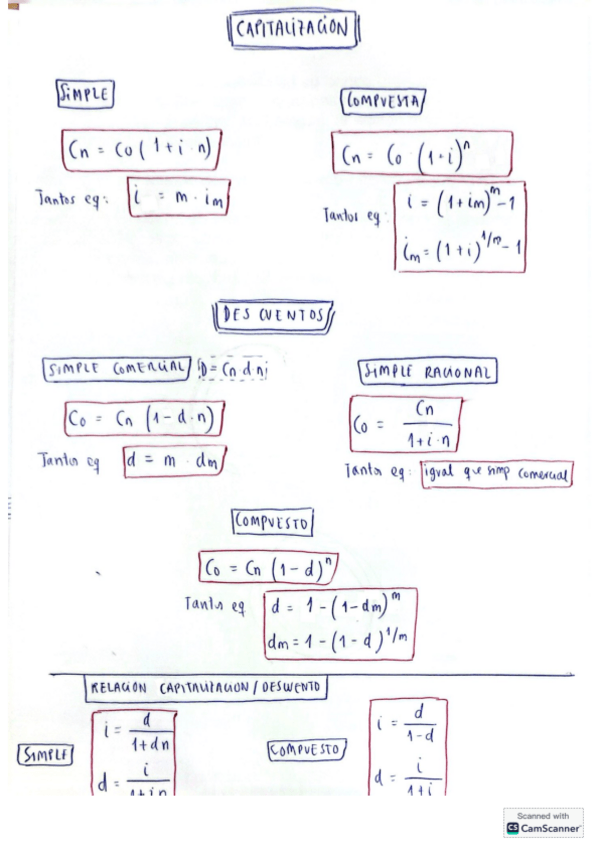 CAPITALIZACIÓN
SIMPLE
Cn = Co (1 + i · n)
Tantos eq: i = m · im
COMPUESTA
Cn = Co · (1+i)^n
Tantos eq: i = (1+im)^m - 1
im = (1+i)^1/m - 1
DESCUENTOS
SIMPLE COMERCIAL D = Cn d n
Co = Cn (1 - d · n)
Tantos eq d = m · dm
SIMPLE RACIONAL
Co = Cn / 1 + i · n
Tantos eq: igual que simp comercial
COMPUESTO
Co = Cn (1 - d)^n
Tantos eq d = 1 - (1 - dm)^m
dm = 1 - (1 - d)^1/m
RELACIÓN CAPITALIZACION / DESCUENTO
SIMPLE
i = d / 1 + dn
d = i / 1 + in
COMPUESTO
i = d / 1 - d
d = i / 1 + i
Scanned with
CS CamScanner